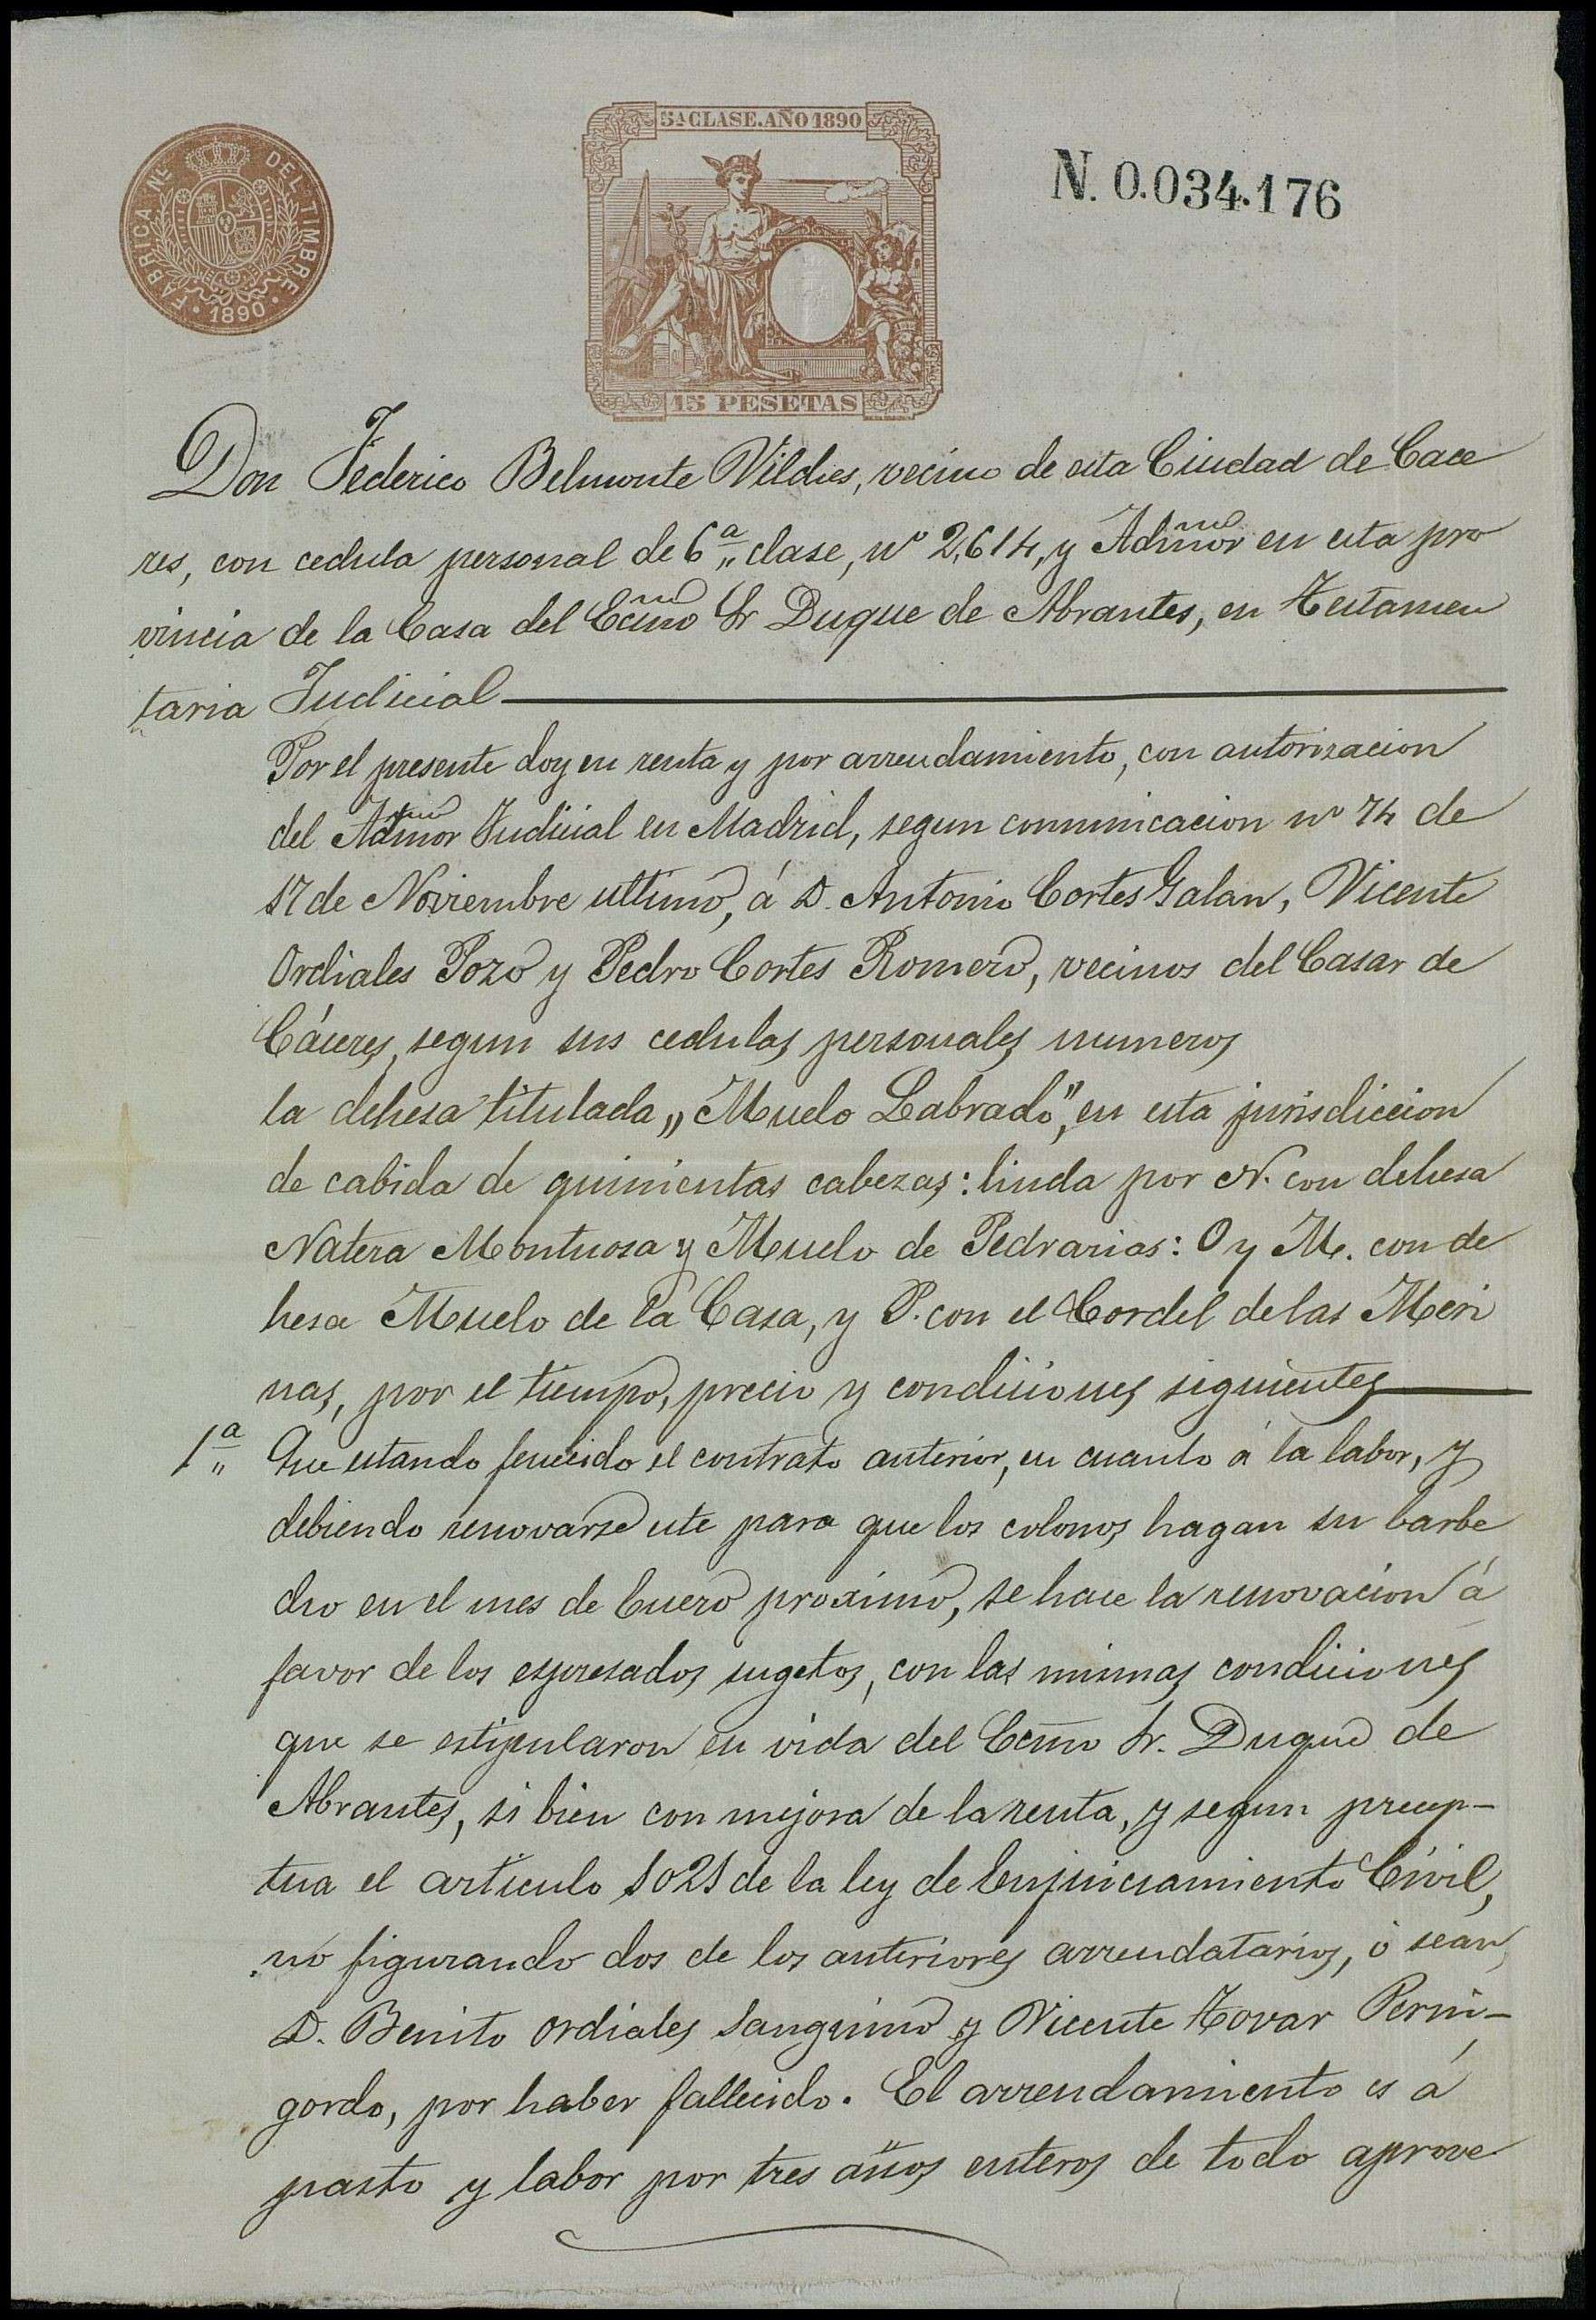 FABRICA NL. DEL TIMBRE · 1890 ·
5ª CLASE. AÑO 1890
N. 0.034.176
15 PESETAS
Don Federico Belmonte Vildies, vecino de esta Ciudad de Cace
res, con cedula personal de 6ª clase, nº 2,614, y Admor en esta pro
vincia de la Casa del Ecmo Sr Duque de Abrantes, en Testamen
taria Judicial
Por el presente doy en renta y por arrendamiento, con autorizacion
del Admor Judicial en Madrid, segun comunicacion nº 74 de
17 de Noviembre ultimo, á D. Antonio Cortes Galan, Vicente
Ordiales Pozo y Pedro Cortes Romero, vecinos del Casar de
Cáceres, segun sus cedulas personales numeros
la dehesa titulada „Muelo Labrado", en esta jurisdiccion
de cabida de quinientas cabezas: linda por N. con dehesa
Natera Montuosa y Muelo de Pedrarias: O y M. con de
hesa Muelo de la Casa, y P. con el Cordel de las Meri
nas, por el tiempo, precio y condiciones siguientes
1ª Que estando fenecido el contrato anterior, en cuanto á la labor, y
debiendo renovarse este para que los colonos hagan su barbe
cho en el mes de Enero proximo, se hace la renovacion á
favor de los espresados sugetos, con las mismas condiciones
que se estipularon en vida del Ecmo Sr. Duque de
Abrantes, si bien con mejora de la renta, y segun precep-
tua el articulo 1021 de la ley de Enjuiciamiento Civil,
no figurando dos de los anteriores arrendatarios, ó sean
D. Benito Ordiales Sanguino y Vicente Tovar Perni-
gordo, por haber fallecido. El arrendamiento es á
pasto y labor por tres años enteros de todo aprove